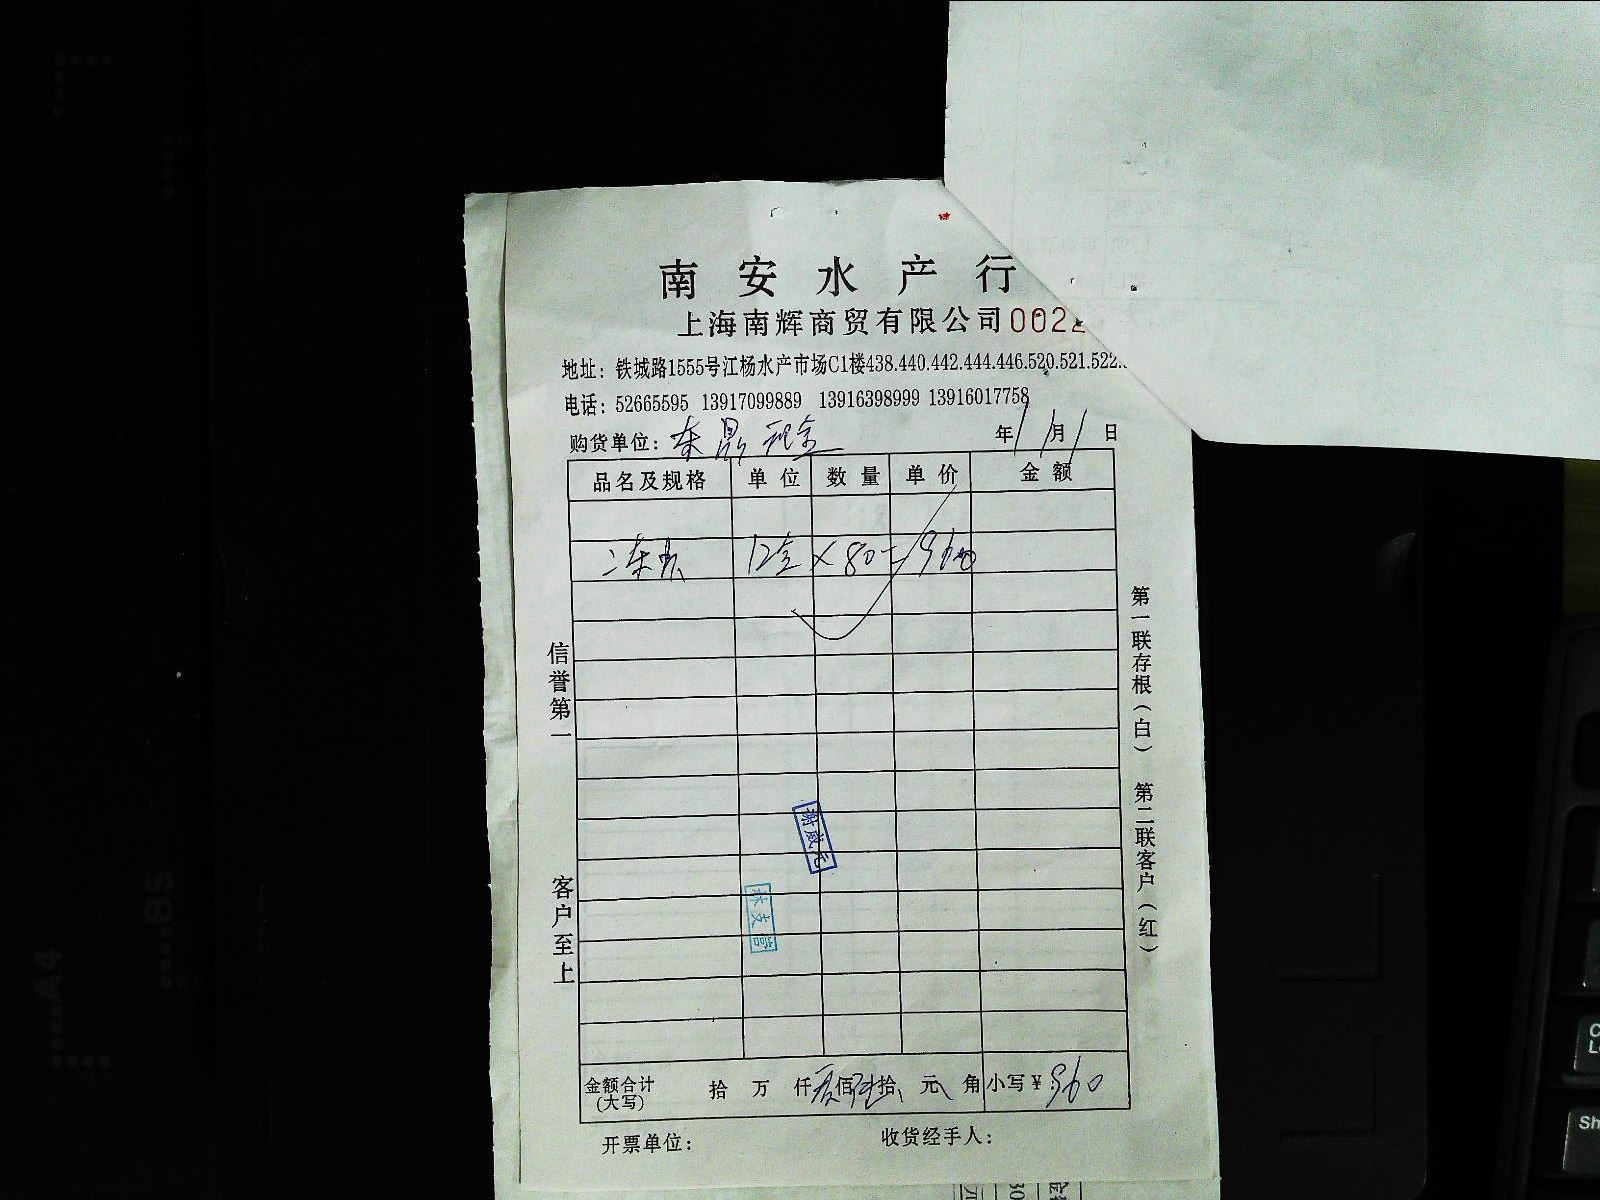 南安水产行
上海南辉商贸有限公司 0022
地址：铁城路1555号江杨水产市场C1楼438.440.442.444.446.520.521.522.
电话：52665595 13917099889 13916398999 13916017758
购货单位： 年 1 月 1 日
品名及规格 单位 数量 单价 金额
12 × 80 = 960
信誉第一
客户至上
第一联存根（白） 第二联客户（红）
谢威
林支营
金额合计（大写） 拾 万 仟 佰 陆拾 元 角 小写￥960
开票单位： 收货经手人：
B5
A4
Sh